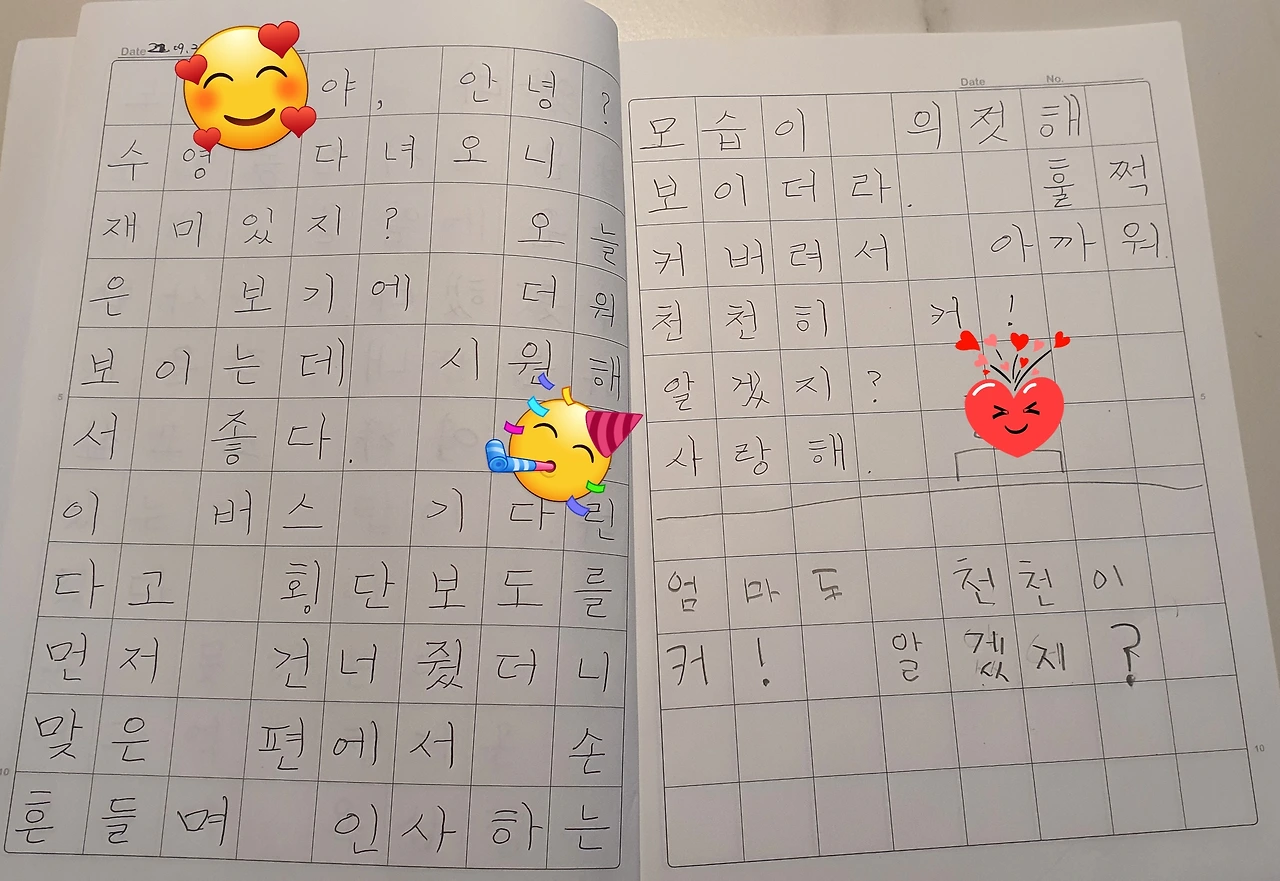 Date 22.09.2
야, 안녕?
수영 다녀오니
재미있지? 오늘
은 보기에 더워
보이는데 시원해
서 좋다.
이 버스 기다린
다고 횡단보도를
먼저 건너줬더니
맞은 편에서 손
흔들며 인사하는
5
10
Date No.
모습이 의젓해
보이더라. 훌쩍
커버려서 아까워.
천천히 커!
알겠지?
사랑해.
엄마도 천천이
커! 알겠제?
5
10